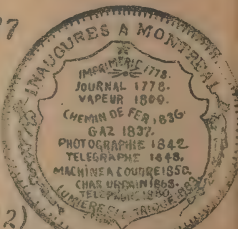 7
INAUGURES A MONTREAL
IMPRIMERIE 1778.
JOURNAL 1778.
VAPEUR 1809.
CHEMIN DE FER 1836
GAZ 1837.
PHOTOGRAPHIE 1842
TELEGRAPHE 1848.
MACHINE A COUDRE 1850.
CHAR URBAIN 1863.
TELEPHONE 1880.
LUMIERE ELECTRIQUE
2)